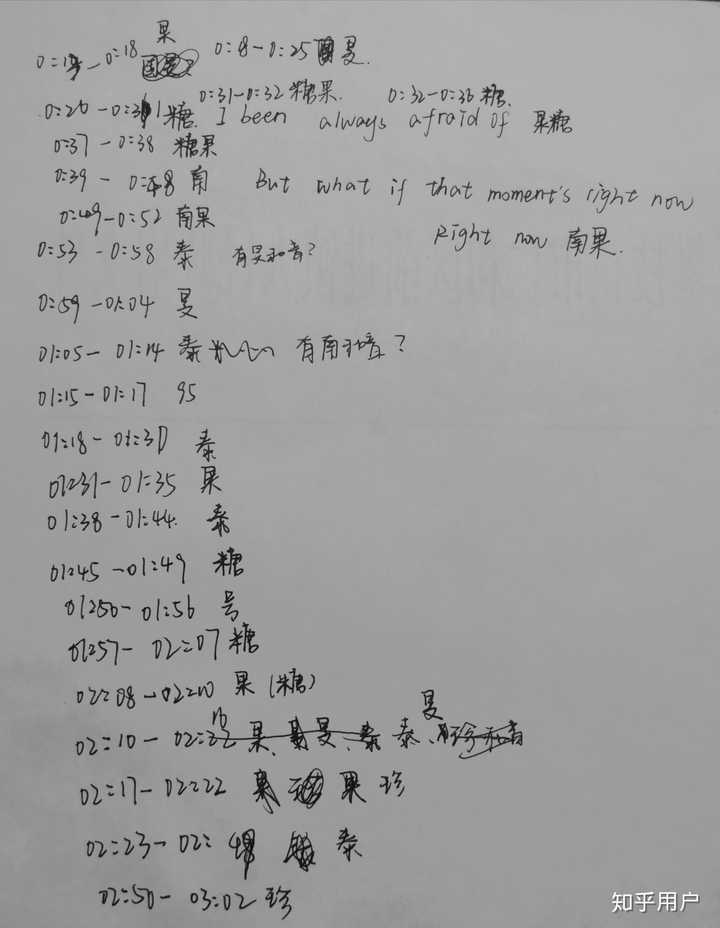 果
0:18 0:8-0:25 旻.
0:31-0:32 糖果. 0:32-0:36 糖.
0:26-0:31 糖. I been always afraid of 果糖
0:37-0:38 糖果
0:39-0:48 南 But what if that moment's right now
0:49-0:52 南果 Right now 南果.
0:53-0:58 泰 有旻和音?
0:59-01:04 旻
01:05-01:14 泰 有南和音?
01:15-01:17 95
01:18-01:30 泰
01:31-01:35 果
01:38-01:44. 泰
01:45-01:49 糖
01:50-01:56 号
01:57-02:07 糖
02:08-02:10 果 (糖)
旻
02:10-02: 泰、
02:17-02:22 果 珍
02:23-02: 泰
02:50-03:02 珍
知乎用户